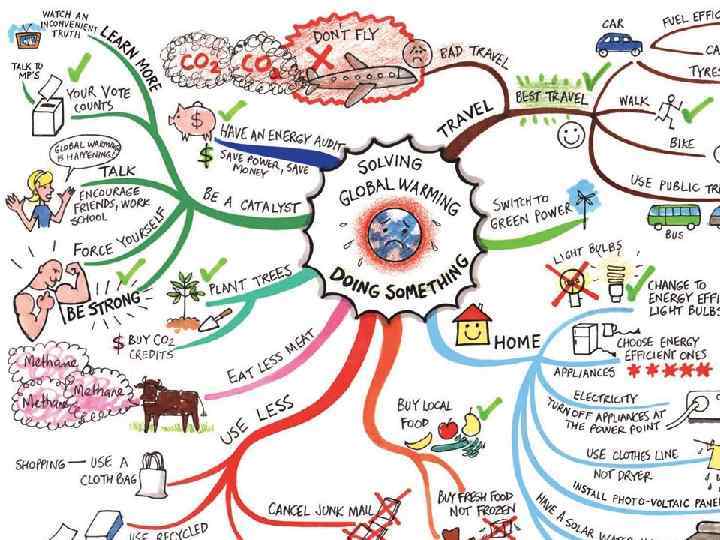 WATCH AN
INCONVENIENT
TRUTH
LEARN MORE
TALK TO
MP'S
YOUR VOTE
COUNTS
GLOBAL WARMING
IS HAPPENING!
TALK
ENCOURAGE
FRIENDS, WORK
SCHOOL
FORCE YOURSELF
BE STRONG
BE A CATALYST
CO2 CO2
DON'T FLY
BAD TRAVEL
TRAVEL
BEST TRAVEL
CAR
FUEL EFFIC
CA
TYRES
WALK
BIKE
USE PUBLIC TR
BUS
$
HAVE AN ENERGY AUDIT
$ SAVE POWER, SAVE
MONEY
SOLVING
GLOBAL WARMING
DOING SOMETHING
SWITCH TO
GREEN POWER
PLANT TREES
$ BUY CO2
CREDITS
EAT LESS MEAT
Methane
Methane
Methane
USE LESS
SHOPPING — USE A
CLOTH BAG
USE RECYCLED
CANCEL JUNK MAIL
BUY LOCAL
FOOD
BUY FRESH FOOD
NOT FROZEN
HOME
LIGHT BULBS
CHANGE TO
ENERGY EFFI
LIGHT BULBS
APPLIANCES
CHOOSE ENERGY
EFFICIENT ONES
ELECTRICITY
TURN OFF APPLIANCES AT
THE POWER POINT
USE CLOTHES LINE
NOT DRYER
INSTALL PHOTO-VOLTAIC PANE
HAVE A SOLAR WATER